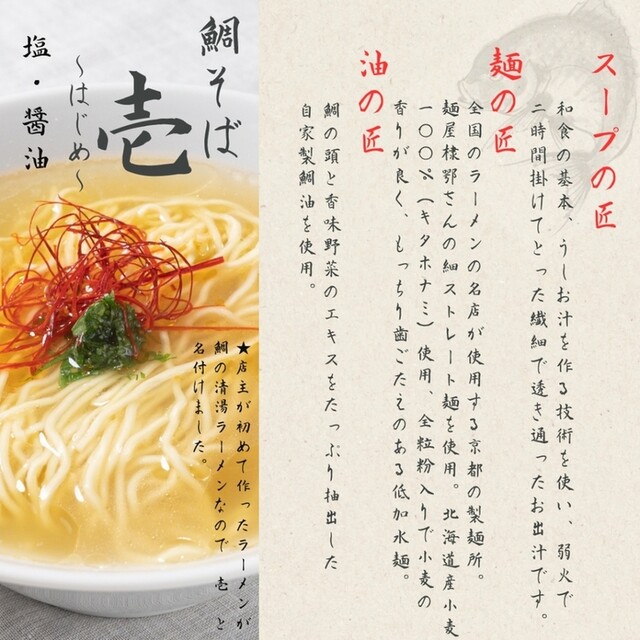 スープの匠
和食の基本、うしお汁を作る技術を使い、弱火で
二時間掛けてとった繊細で透き通ったお出汁です。
麺の匠
全国のラーメンの名店が使用する京都の製麺所。
麺屋棣鄂さんの細ストレート麺を使用。北海道産小麦
一〇〇％（キタホナミ）使用、全粒粉入りで小麦の
香りが良く、もっちり歯ごたえのある低加水麺。
油の匠
鯛の頭と香味野菜のエキスをたっぷり抽出した
自家製鯛油を使用。
鯛そば
壱
〜はじめ〜
塩・醤油
★店主が初めて作ったラーメンが
鯛の清湯ラーメンなので 壱 と
名付けました。